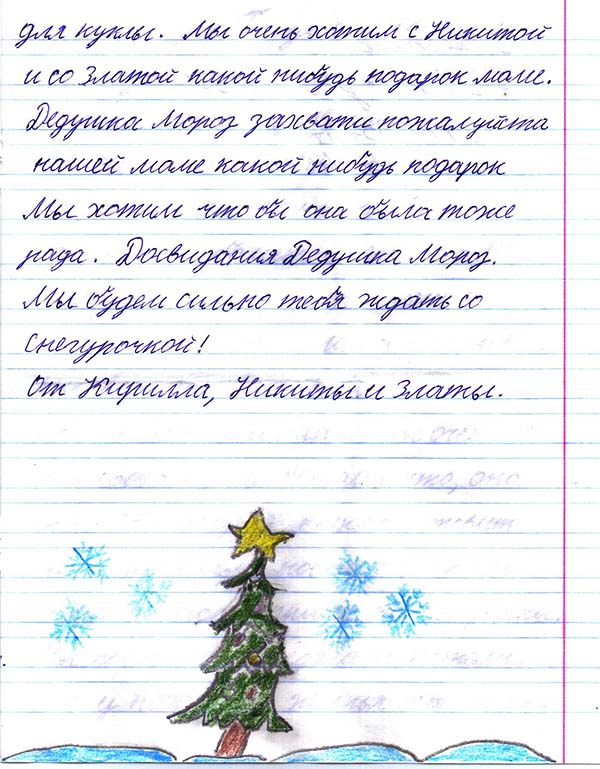 для куклы. Мы очень хотим с Никитой
и со Златой какой нибудь подарок маме.
Дедушка Мороз захвати пожалуйста
нашей маме какой нибудь подарок
Мы хотим что бы она была тоже
рада. Досвидания Дедушка Мороз.
Мы будем сильно тебя ждать со
снегурочкой!
От Кирилла, Никиты и Златы.